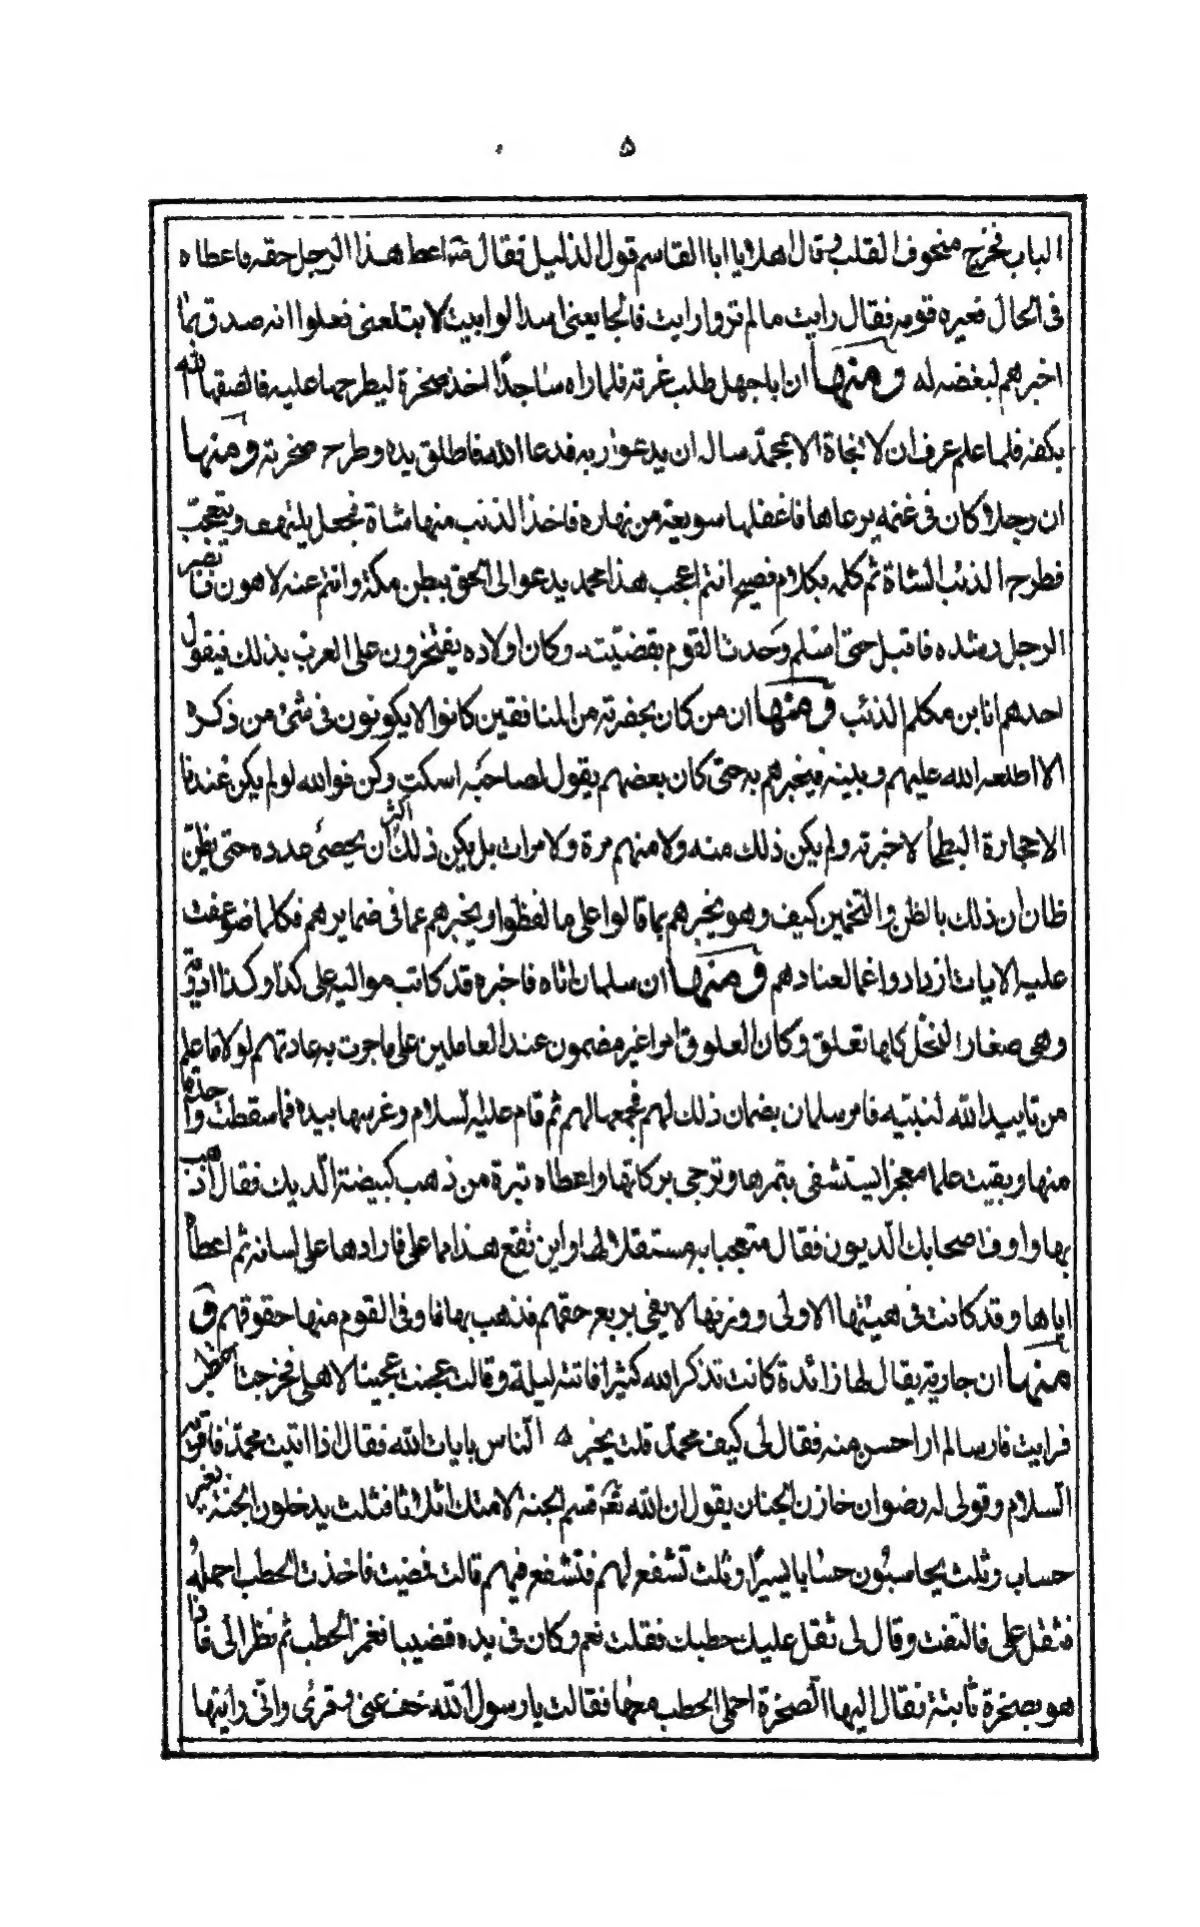 ۵
الباب فخرج منخوف القلب وقال اهلا يا ابا القاسم قول الذليل فقال له اعط هذا الرجل حقه فاعطاه
فى الحال فعيره قومه فقال رايت ما لم تروا رايت فالجا يعنى اسدا لو ابيت لابتلعنى فعلموا انه صدق بما
اخبرهم لبغضه له ومنها ان اباجهل طلب غرته فلما راه ساجدًا اخذ صخرة ليطرحها عليه فالصقها الله
بكفه فلما علم عرف ان لا نجاة الا بمحمد ساله ان يدعو ربه فدعا الله فاطلق يده وطرح صخرته ومنها
ان رجلا كان فى غنمه يرعاها فاغفلها سويعة من نهاره فاخذ الذئب منها شاة فجعل يلتهف ويتعجب
فطرح الذئب الشاة ثم كلمه بكلام فصيح انتم اعجب هذا محمد يدعو الى الحق ببطن مكة وانتم عنه لاهون فابصر
الرجل رشده فاقبل حتى اسلم وحدث القوم بقضيته وكان اولاده يفتخرون على العرب بذلك فيقول
احدهم انا ابن مكلم الذئب ومنها ان من كان بحضرته من المنافقين كانوا لا يكونون فى شئ من ذكره
الا اطلعه الله عليهم وبينه فيخبرهم به حتى كان بعضهم يقول لصاحبه اسكت وكن فوالله لو لم يكن عندنا
الا حجارة البطحا لاخبرته ولم يكن ذلك منه ولا منهم مرة ولا مرات بل يكن ذلك اكثر ان يحصى عدده حتى يظن
ظان ان ذلك بالظن والتخمين كيف وهو يخبرهم بما قالوا على ما لفظوا ويخبرهم عما فى ضمايرهم فكلما ضوعفت
عليه الايات ازدادوا عمى لعنادهم ومنها ان سلمان اتاه فاخبره قد كاتب مواليه على كذا وكذا ودية
وهى صغار النخل كلها تعلق وكان العلوق امرا غير مضمون عند العاملين على ما جرت به عادتهم لولا ما علم
من تاييد الله لنبيه فامر سلمان بضمان ذلك لهم فجمعها لهم ثم قام عليه السلام وغرسها بيده فما سقطت واحدة
منها وبقيت علما معجزا يستشفى بتمرها وترجى بركاتها واعطاه تبرة من ذهب كبيضة الديك فقال اذهب
بها واوف اصحابك الديون فقال متعجبا به مستقلا لها اين تقع هذه مما على فادارها على لسانه ثم اعطاه
اياها وقد كانت فى هيئتها الاولى ووزنها لا يفى بربع حقهم فذهب بها فاوفى القوم منها حقوقهم و
منها ان جارية يقال لها زائدة كانت تذكر الله كثيرا فاتته ليلة وقالت عجنت عجينا لاهلى فخرجت احتطب
فرايت فارسا لم ار احسن منه فقال لى كيف محمد قلت بخير الناس بايات الله فقال اذا اتيت محمدا فاقرئيه
السلام وقولى له رضوان خازن الجنان يقول ان الله تعم قسم الجنة لامتك اثلاثا فثلث يدخلون الجنة بغير
حساب وثلث يحاسبون حسابا يسيرًا وثلث تشفع لهم فتشفع فيهم قالت فمضيت فاخذت الحطب احمله
فثقل على فالتفت وقال لى ثقل عليك حطبك فقلت نعم وكان فى يده قضيبا فغمز الحطب ثم نظر الى فاذا
هو بصخرة ثابتة فقال ايها الصخرة احملى الحطب معها فقالت يا رسول الله خف عنى وقرى وانى رايتها